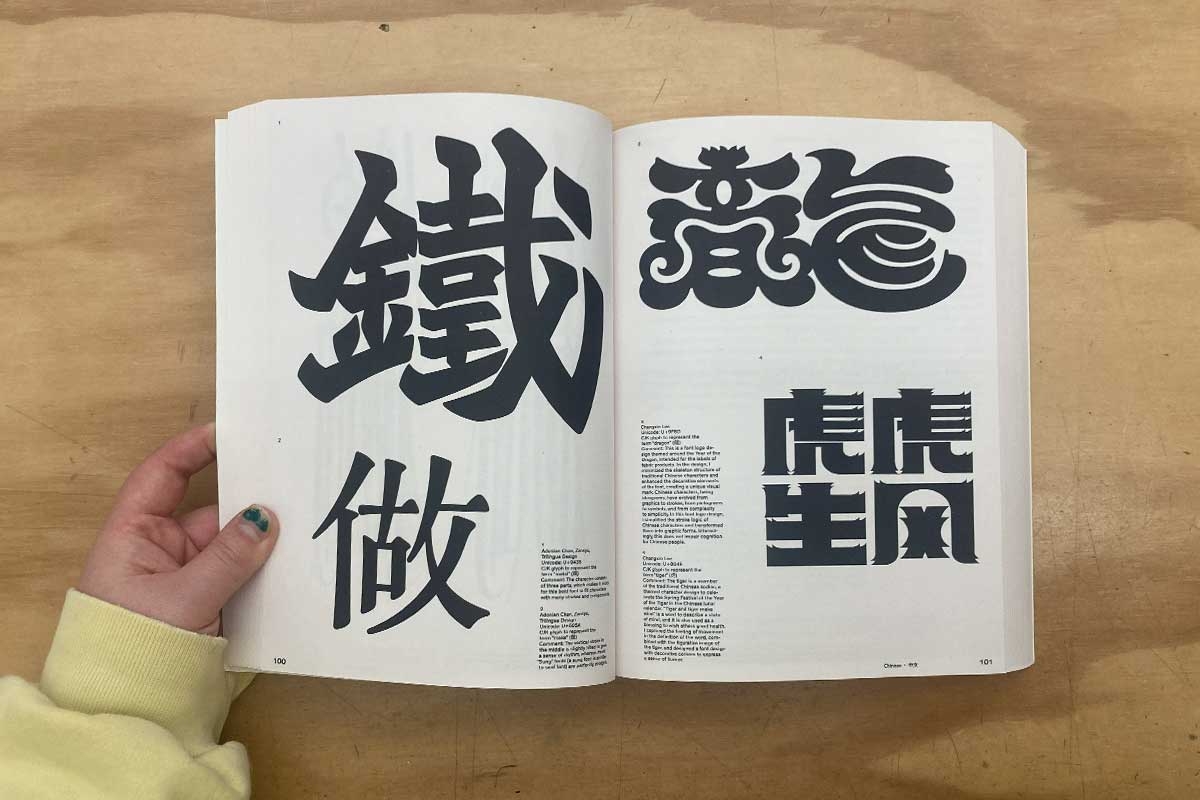 1
鐵
2
做
1
Adonian Chan,
Trilingua Design
Unicode: U+9435
CJK glyph to represent the
term "metal" (鐵)
Comment: The character consists
of three parts, which makes it
for this bold font to fit characters
with many strokes and components.
2
Adonian Chan,
Trilingua Design
Unicode: U+505A
CJK glyph to represent the
term "make" (做)
Comment: The vertical stroke in
the middle is slightly tilted to give
a sense of rhythm, whereas most
"Sung" fonts (a sung font is similar
to serif font) are perfectly straight.
100
3
龍
4
虎虎
生风
3
Changxin Lee
Unicode: U+9F8D
CJK glyph to represent the
term "dragon" (龍)
Comment: This is a font logo de-
sign themed around the Year of the
Dragon, intended for the labels of
fabric products. In the design, I
minimized the skeleton structure of
traditional Chinese characters and
enhanced the decorative elements
of the font, creating a unique visual
mark. Chinese characters, being
ideograms, have evolved from
graphics to strokes, from pictograms
to symbols, and from complexity
to simplicity. In this font logo design,
I simplified the stroke logic of
Chinese characters and transformed
them into graphic forms. Interest-
ingly, this does not impair cognition
for Chinese people.
4
Changxin Lee
Unicode: U+864E
CJK glyph to represent the
term "tiger" (虎)
Comment: The tiger is a member
of the traditional Chinese zodiac, a
themed character design to cele-
brate the Spring Festival of the Year
of the Tiger in the Chinese lunar
calendar. "Tiger and tiger make
wind" is a word to describe a state
of mind, and it is also used as a
blessing to wish others good health.
I captured the feeling of movement
in the definition of the word, com-
bined with the figurative image of
the tiger, and designed a font design
with decorative corners to express
a sense of humor.
Chinese · 中文
101